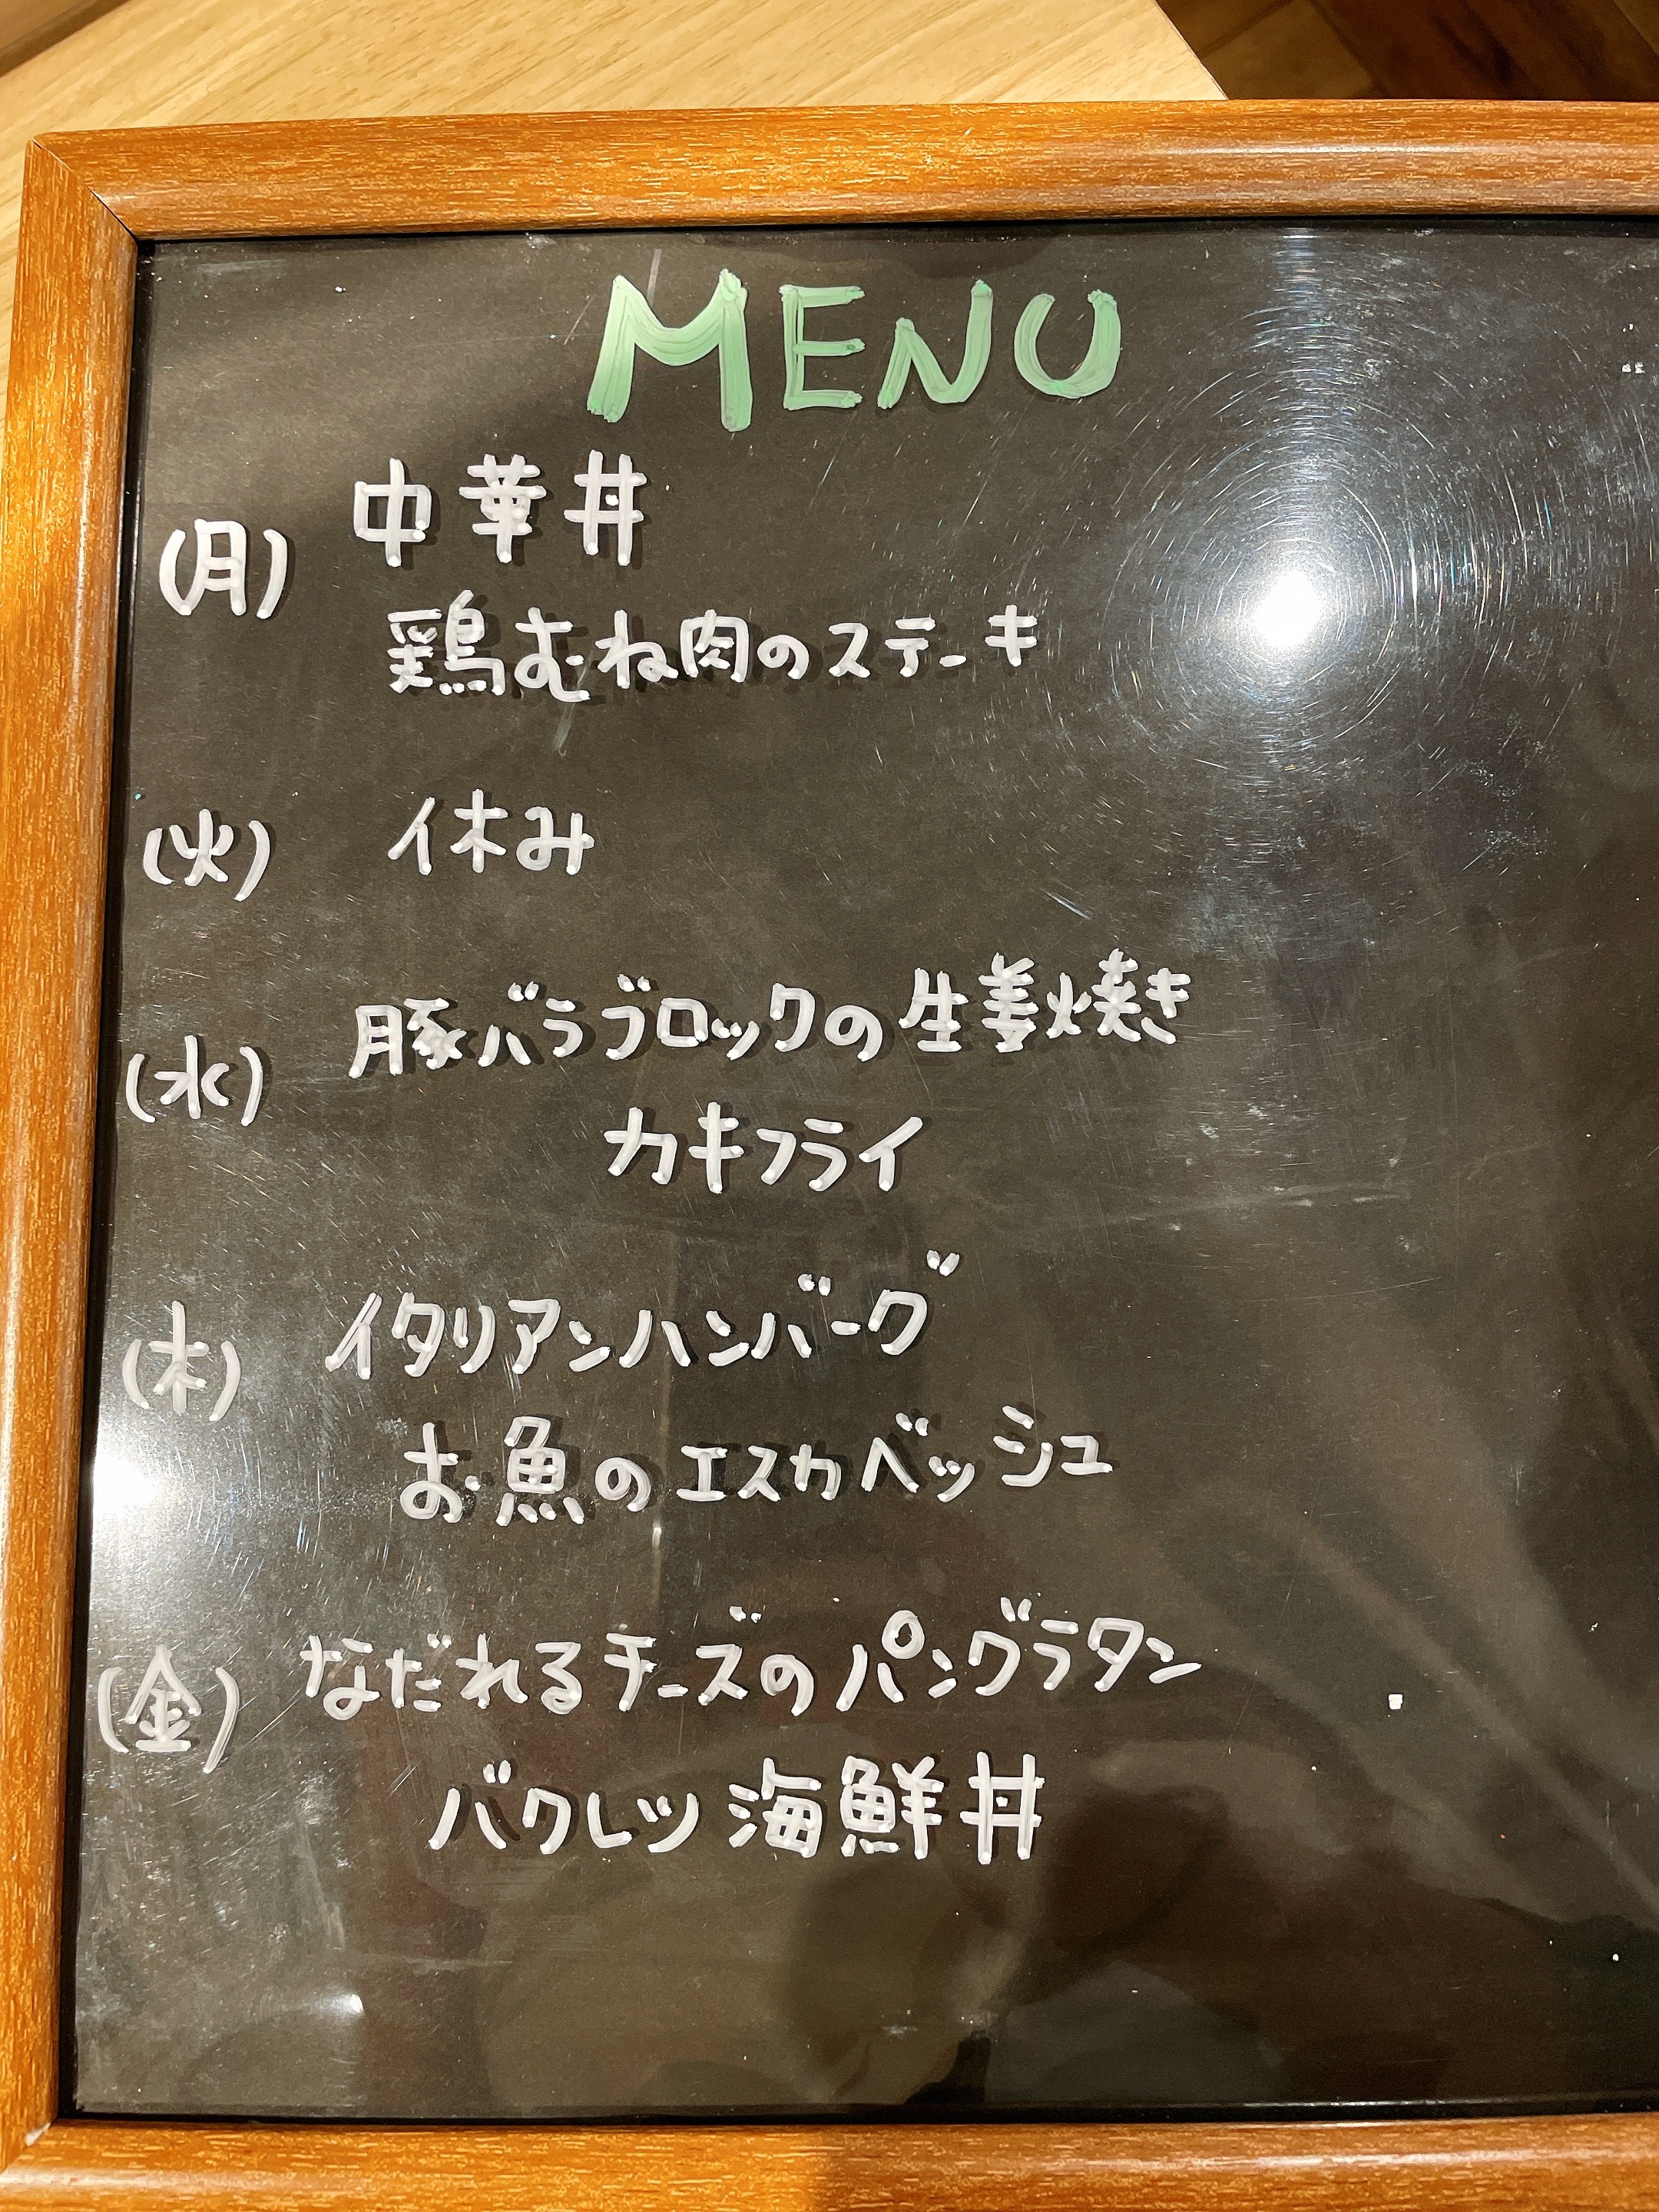 MENU
(月) 中華丼
鶏むね肉のステーキ
(火) 休み
(水) 豚バラブロックの生姜焼き
カキフライ
(木) イタリアンハンバーグ
お魚のエスカベッシュ
(金) なだれるチーズのパングラタン
バクレツ海鮮丼